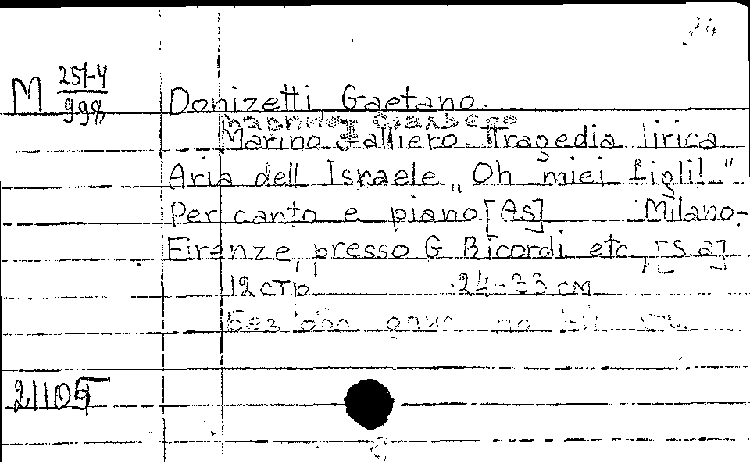 34
M 251-4
998
Donizetti Gaetano.
Marino Falliero Tragedia lirica
Aria dell Israele „Oh miei figli!"
Per canto e piano [As] Milano-
Firenze, presso G Ricordi etc, [S a]
12 стр 24-33 см
Без
21105